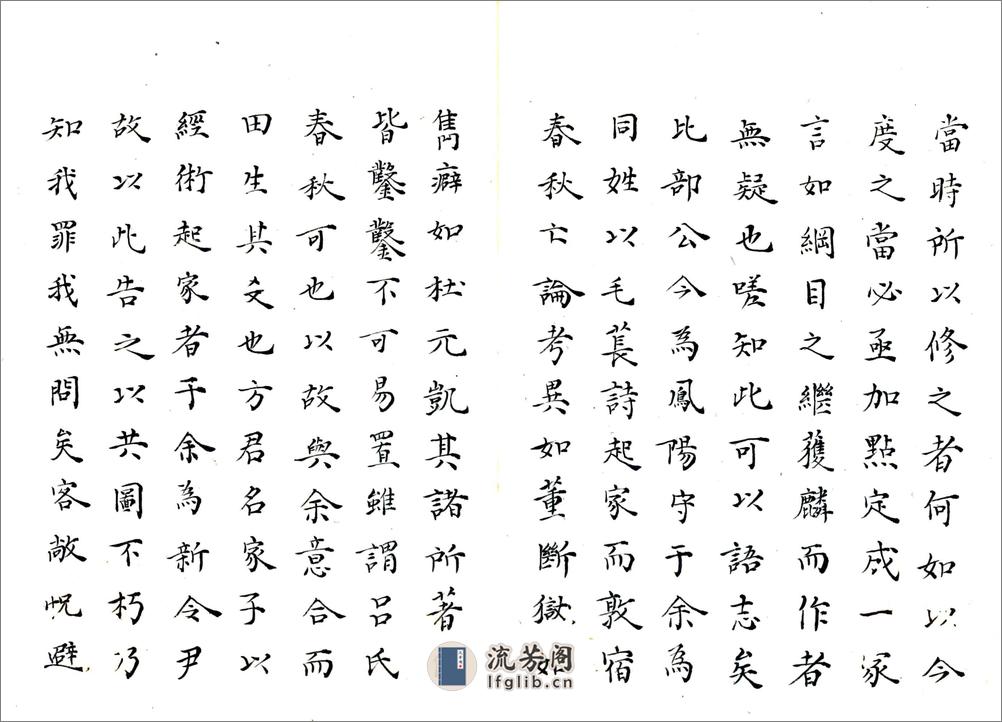 當時所以修之者何如以今
度之當必亟加點定成一家
言如綱目之繼獲麟而作者
無疑也嗟知此可以語志矣
比部公今為鳳陽守于余為
同姓以毛萇詩起家而敦宿
春秋亡論考異如董斷獄如
雋癖如杜元凱其諸所著
皆鑿鑿不可易置雖謂呂氏
春秋可也以故與余意合而
田生其爻也方君名家子以
經術起家者于余為新令尹
故以此告之以共圖不朽乃
知我罪我無問矣客敞怳避
流芳阁
lfglib.cn